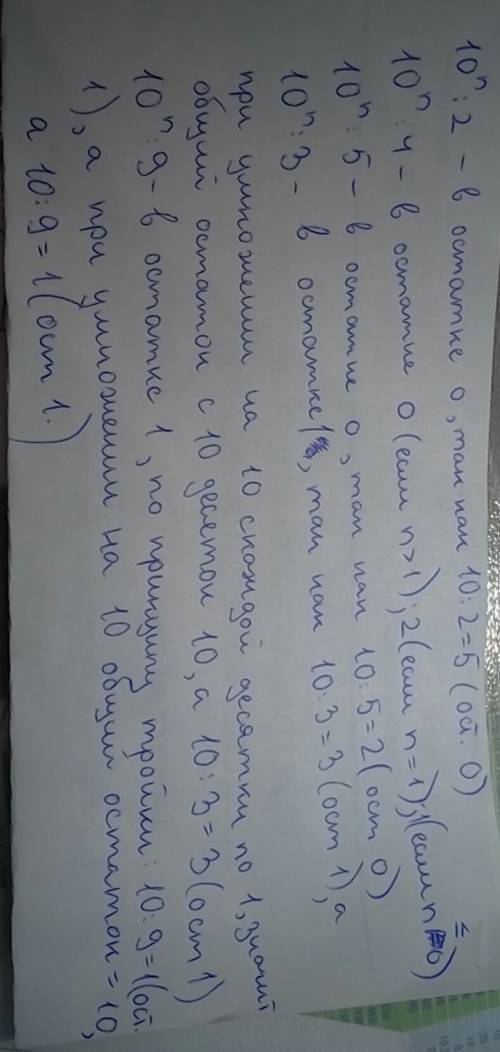 10ⁿ : 2 – в остатке 0, так как 10:2=5 (ост. 0)
10ⁿ : 4 – в остатке 0 (если n>1); 2 (если n=1); 1 (если n=0)
10ⁿ : 5 – в остатке 0, так как 10:5=2 (ост 0)
10ⁿ : 3 – в остатке 1, так как 10:3=3 (ост 1), а
при умножении на 10 с каждой десятки по 1, значит
общий остаток с 10 десяток 10, а 10:3=3 (ост 1)
10ⁿ : 9 – в остатке 1, по принципу тройки: 10:9=1 (ост.
1), а при умножении на 10 общий остаток = 10,
а 10:9=1 (ост 1.)